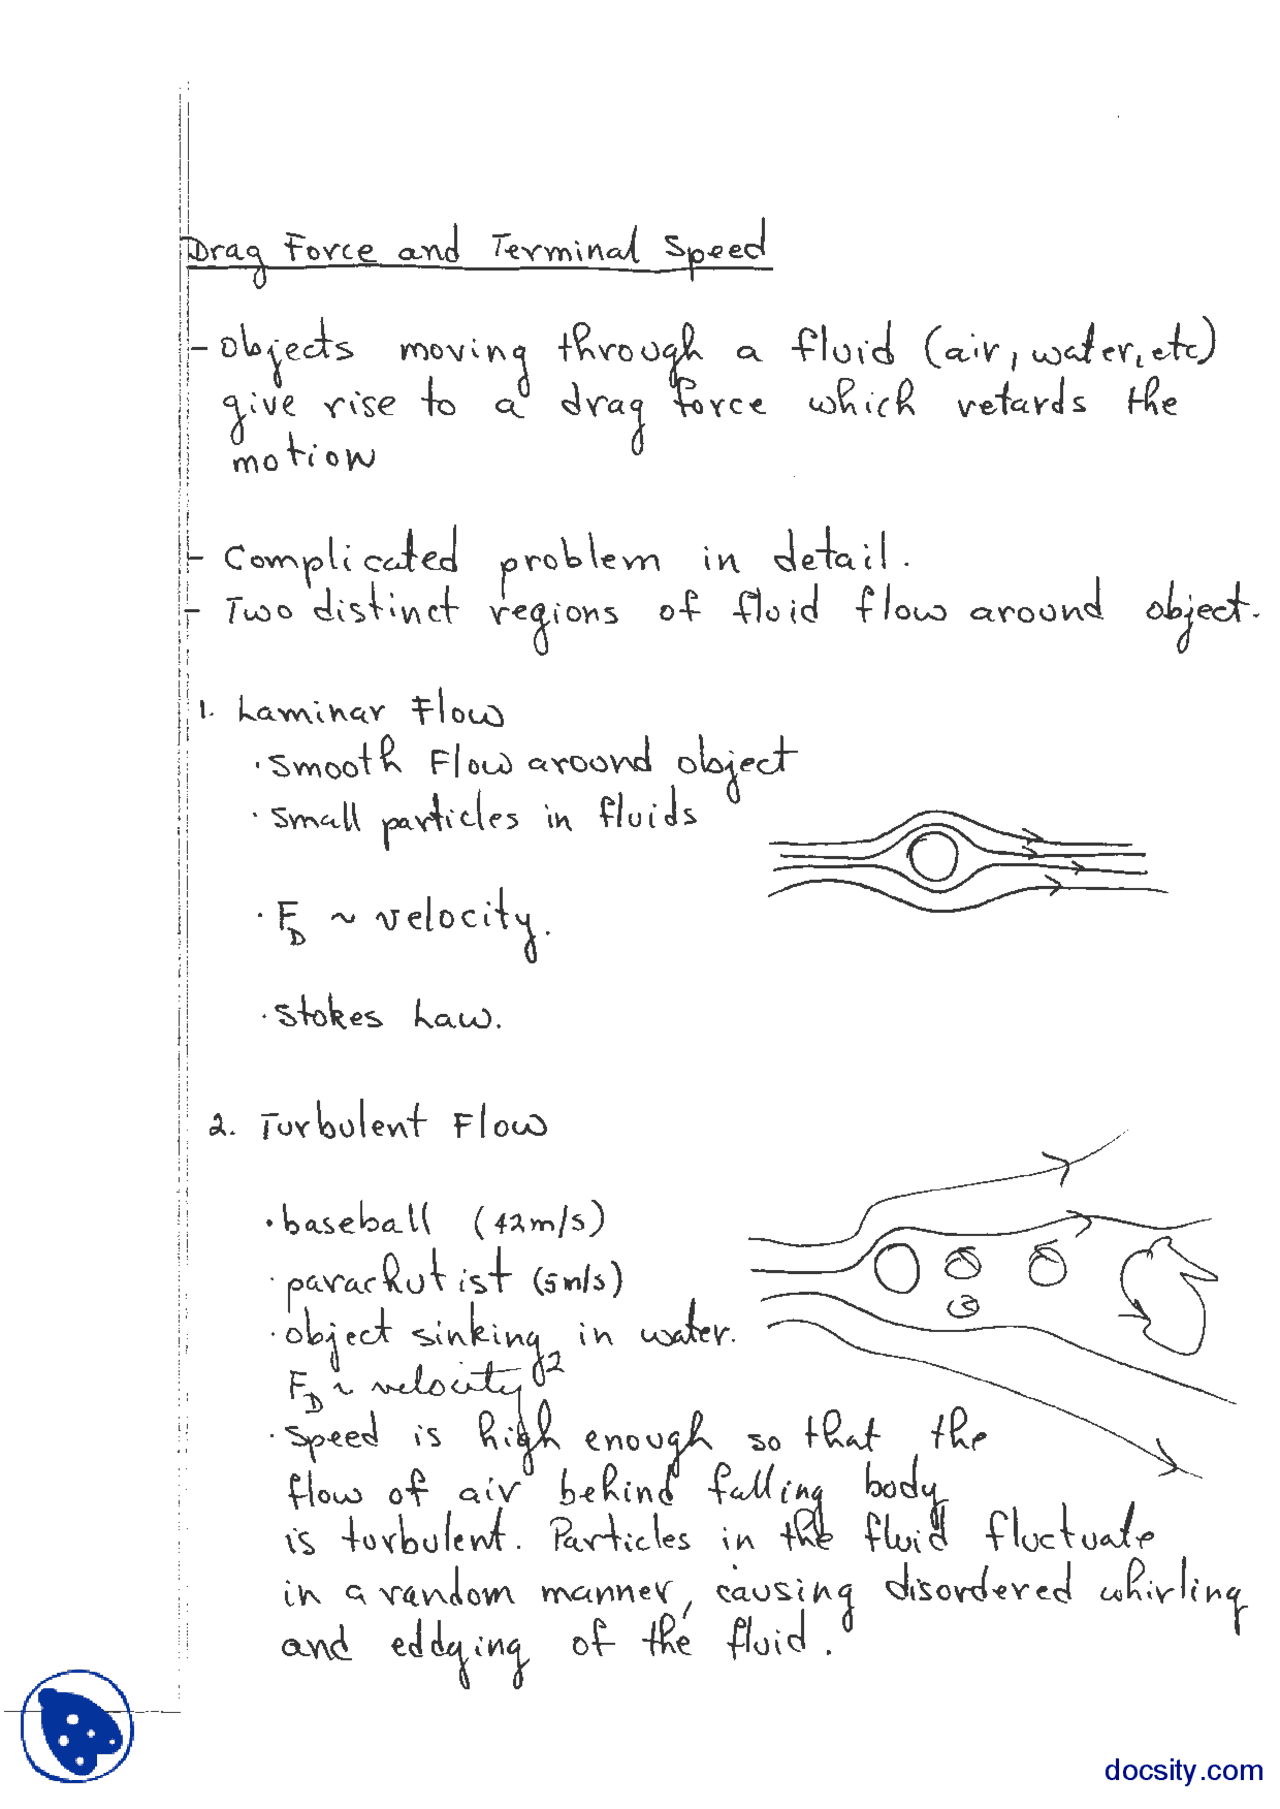 Drag Force and Terminal Speed
- Objects moving through a fluid (air, water, etc)
give rise to a drag force which retards the
motion
- Complicated problem in detail.
- Two distinct regions of fluid flow around object.
1. Laminar Flow
· Smooth Flow around object
· Small particles in fluids
· F_D ~ velocity.
· Stokes Law.
2. Turbulent Flow
· baseball (42m/s)
· parachutist (5m/s)
· object sinking in water.
F_D ~ velocity²
· Speed is high enough so that the
flow of air behind falling body
is turbulent. Particles in the fluid fluctuate
in a random manner, causing disordered whirling
and eddying of the fluid.
docsity.com